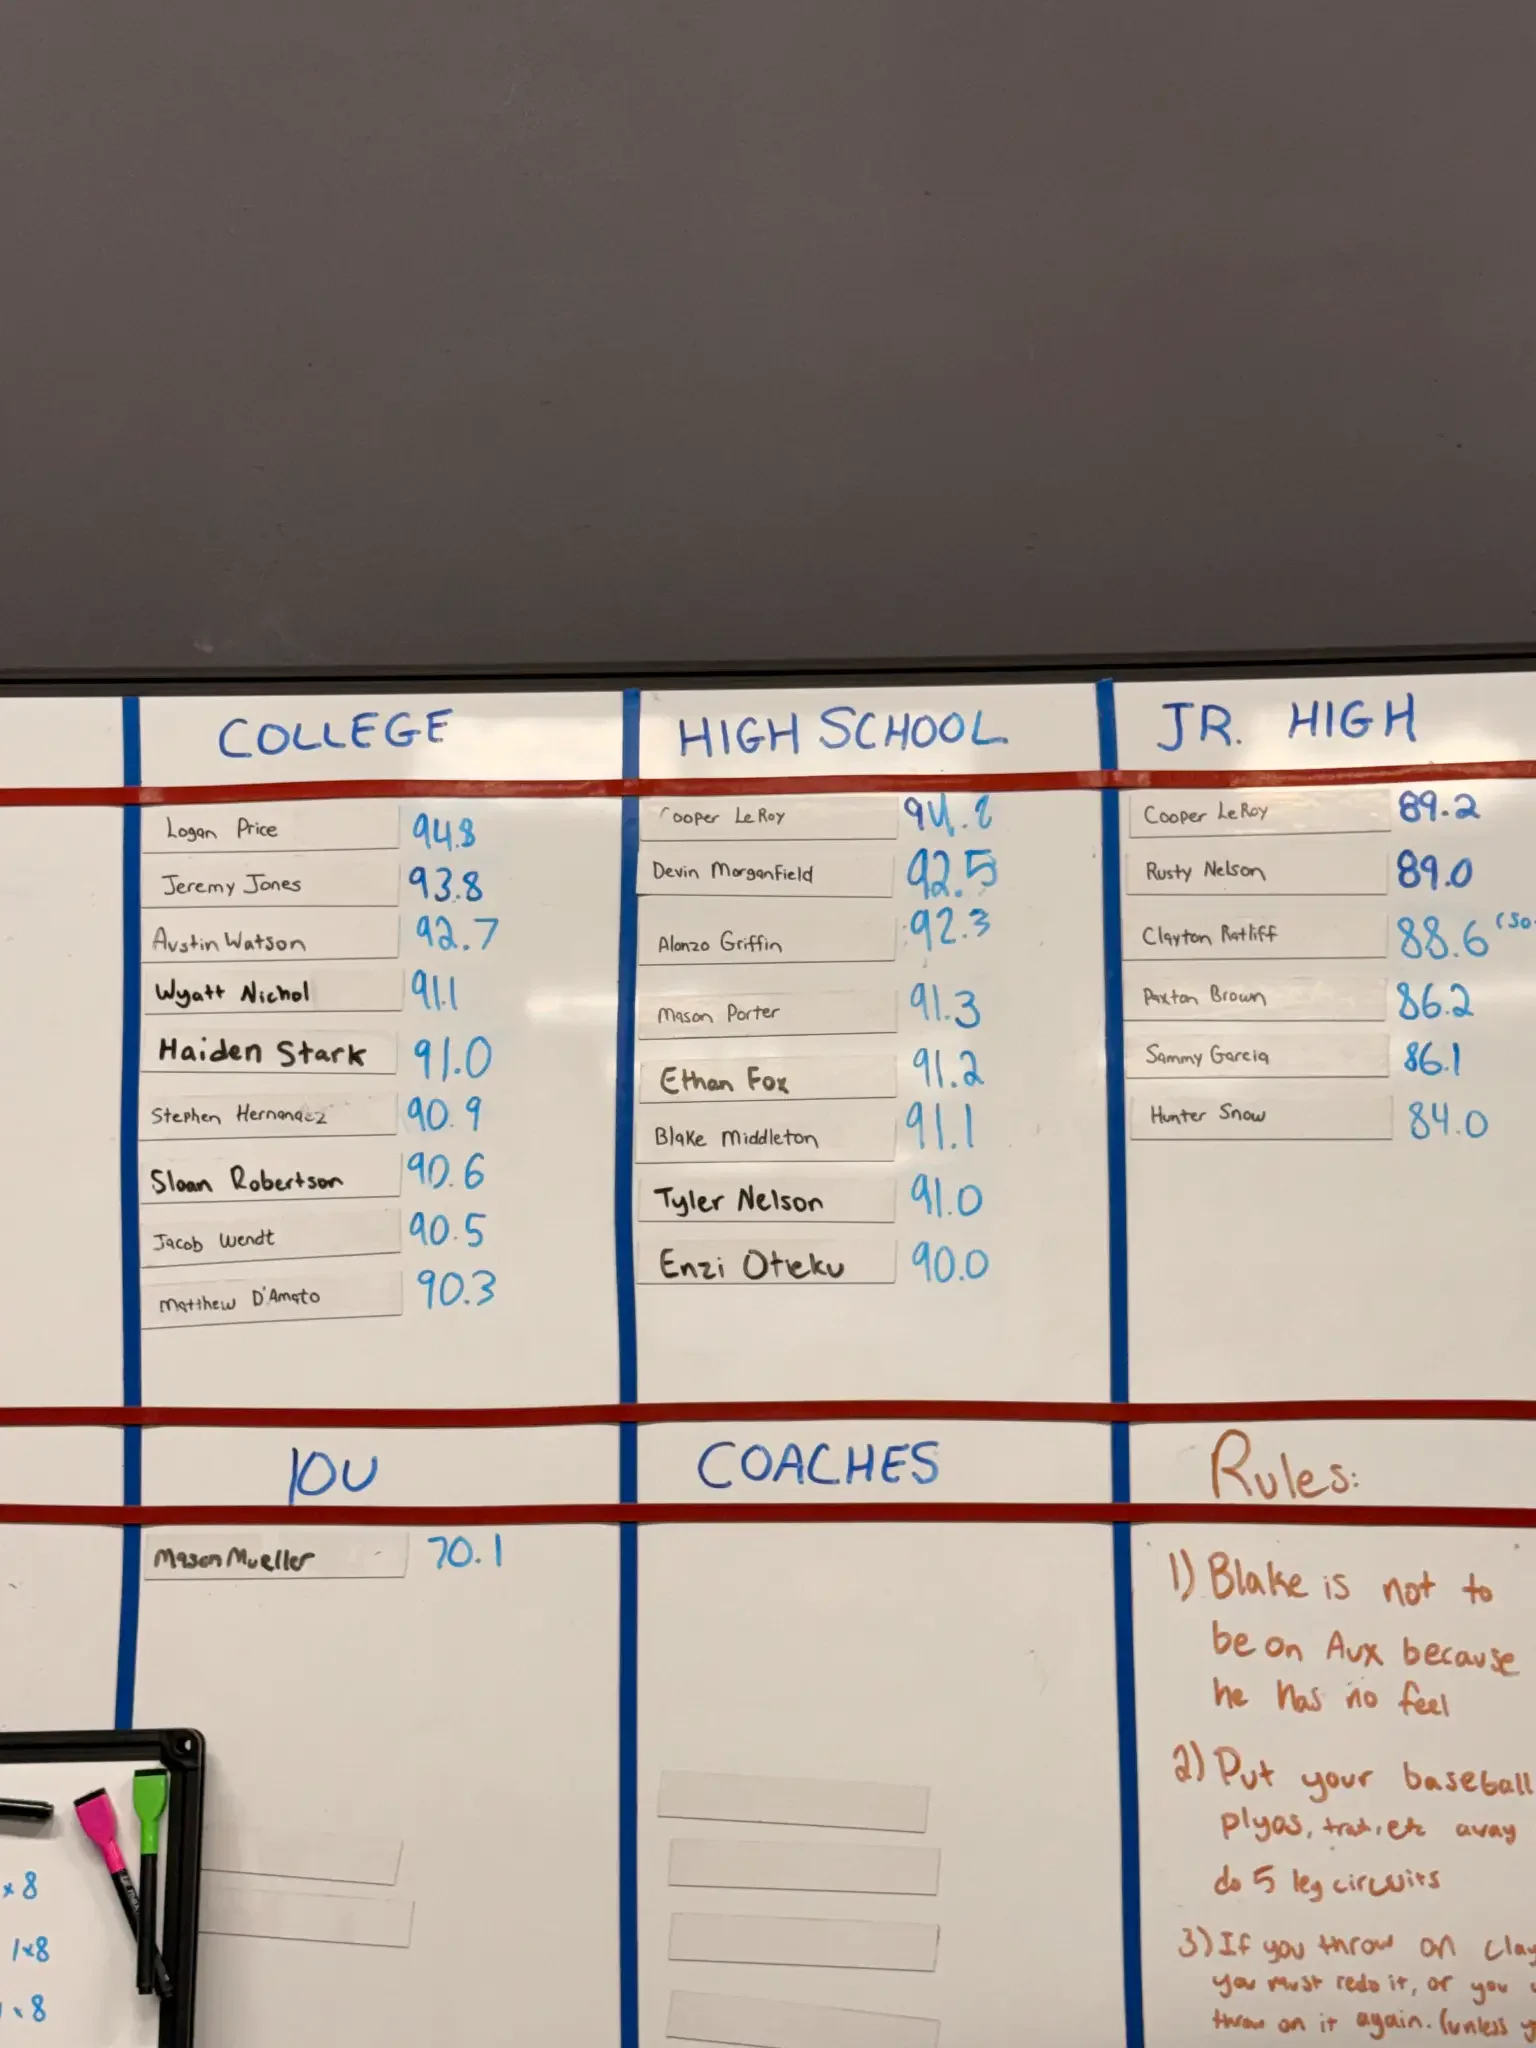 COLLEGE
Logan Price 94.8
Jeremy Jones 93.8
Austin Watson 92.7
Wyatt Nichol 91.1
Haiden Stark 91.0
Stephen Hernandez 90.9
Sloan Robertson 90.6
Jacob Wendt 90.5
Matthew D'Amato 90.3
HIGH SCHOOL
Cooper LeRoy
Devin Morganfield 92.5
Alonzo Griffin 92.3
Mason Porter 91.3
Ethan Fox 91.2
Blake Middleton 91.1
Tyler Nelson 91.0
Enzi Otieku 90.0
JR. HIGH
Cooper LeRoy 89.2
Rusty Nelson 89.0
Clayton Ratliff 88.6 (so
Paxton Brown 86.2
Sammy Garcia 86.1
Hunter Snow 84.0
10U
Mason Mueller 70.1
COACHES
Rules:
1) Blake is not to
be on Aux because
he has no feel
2) Put your baseball
plyos, trash, etc away
do 5 leg circuits
3) If you throw on clay
you must redo it, or you
throw on it again. (unless
x 8
1x8
x 8